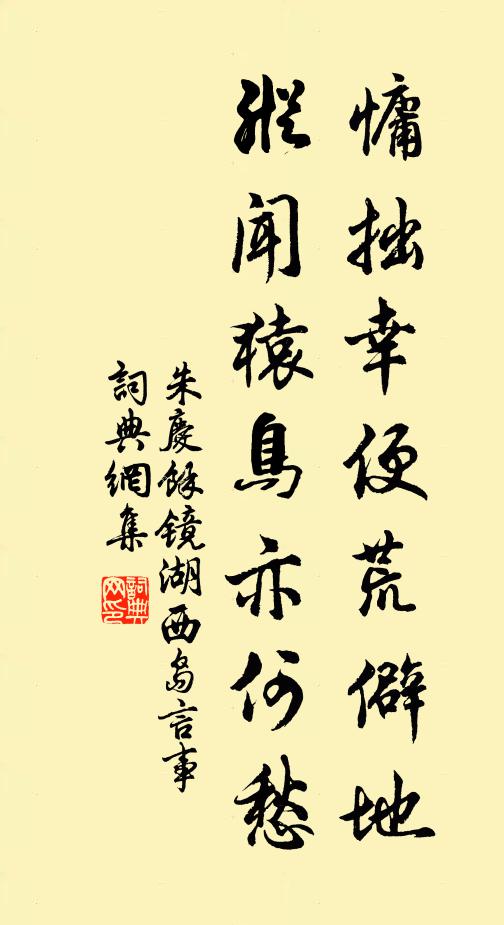 慵拙幸便荒僻地
縱闻猿鳥亦何愁
朱慶餘镜湖西島言事
詞典網集
詞典網印